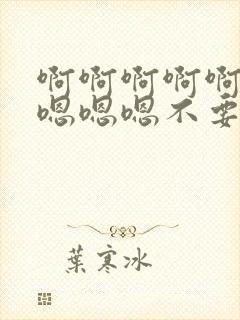 啊啊啊啊啊
嗯嗯嗯不要
葉寒冰